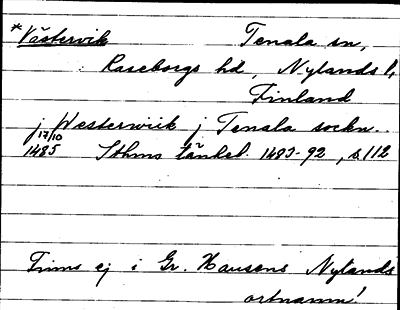 *Västervik Tenala sn,
Raseborgs hd, Nylands l,
Finland
j Westerwiik j Tenala sockn.
17/10
1485 Sthms tänkeb. 1483-92, s. 112
Finns ej i Gr. Hausens Nylands
ortnamn!